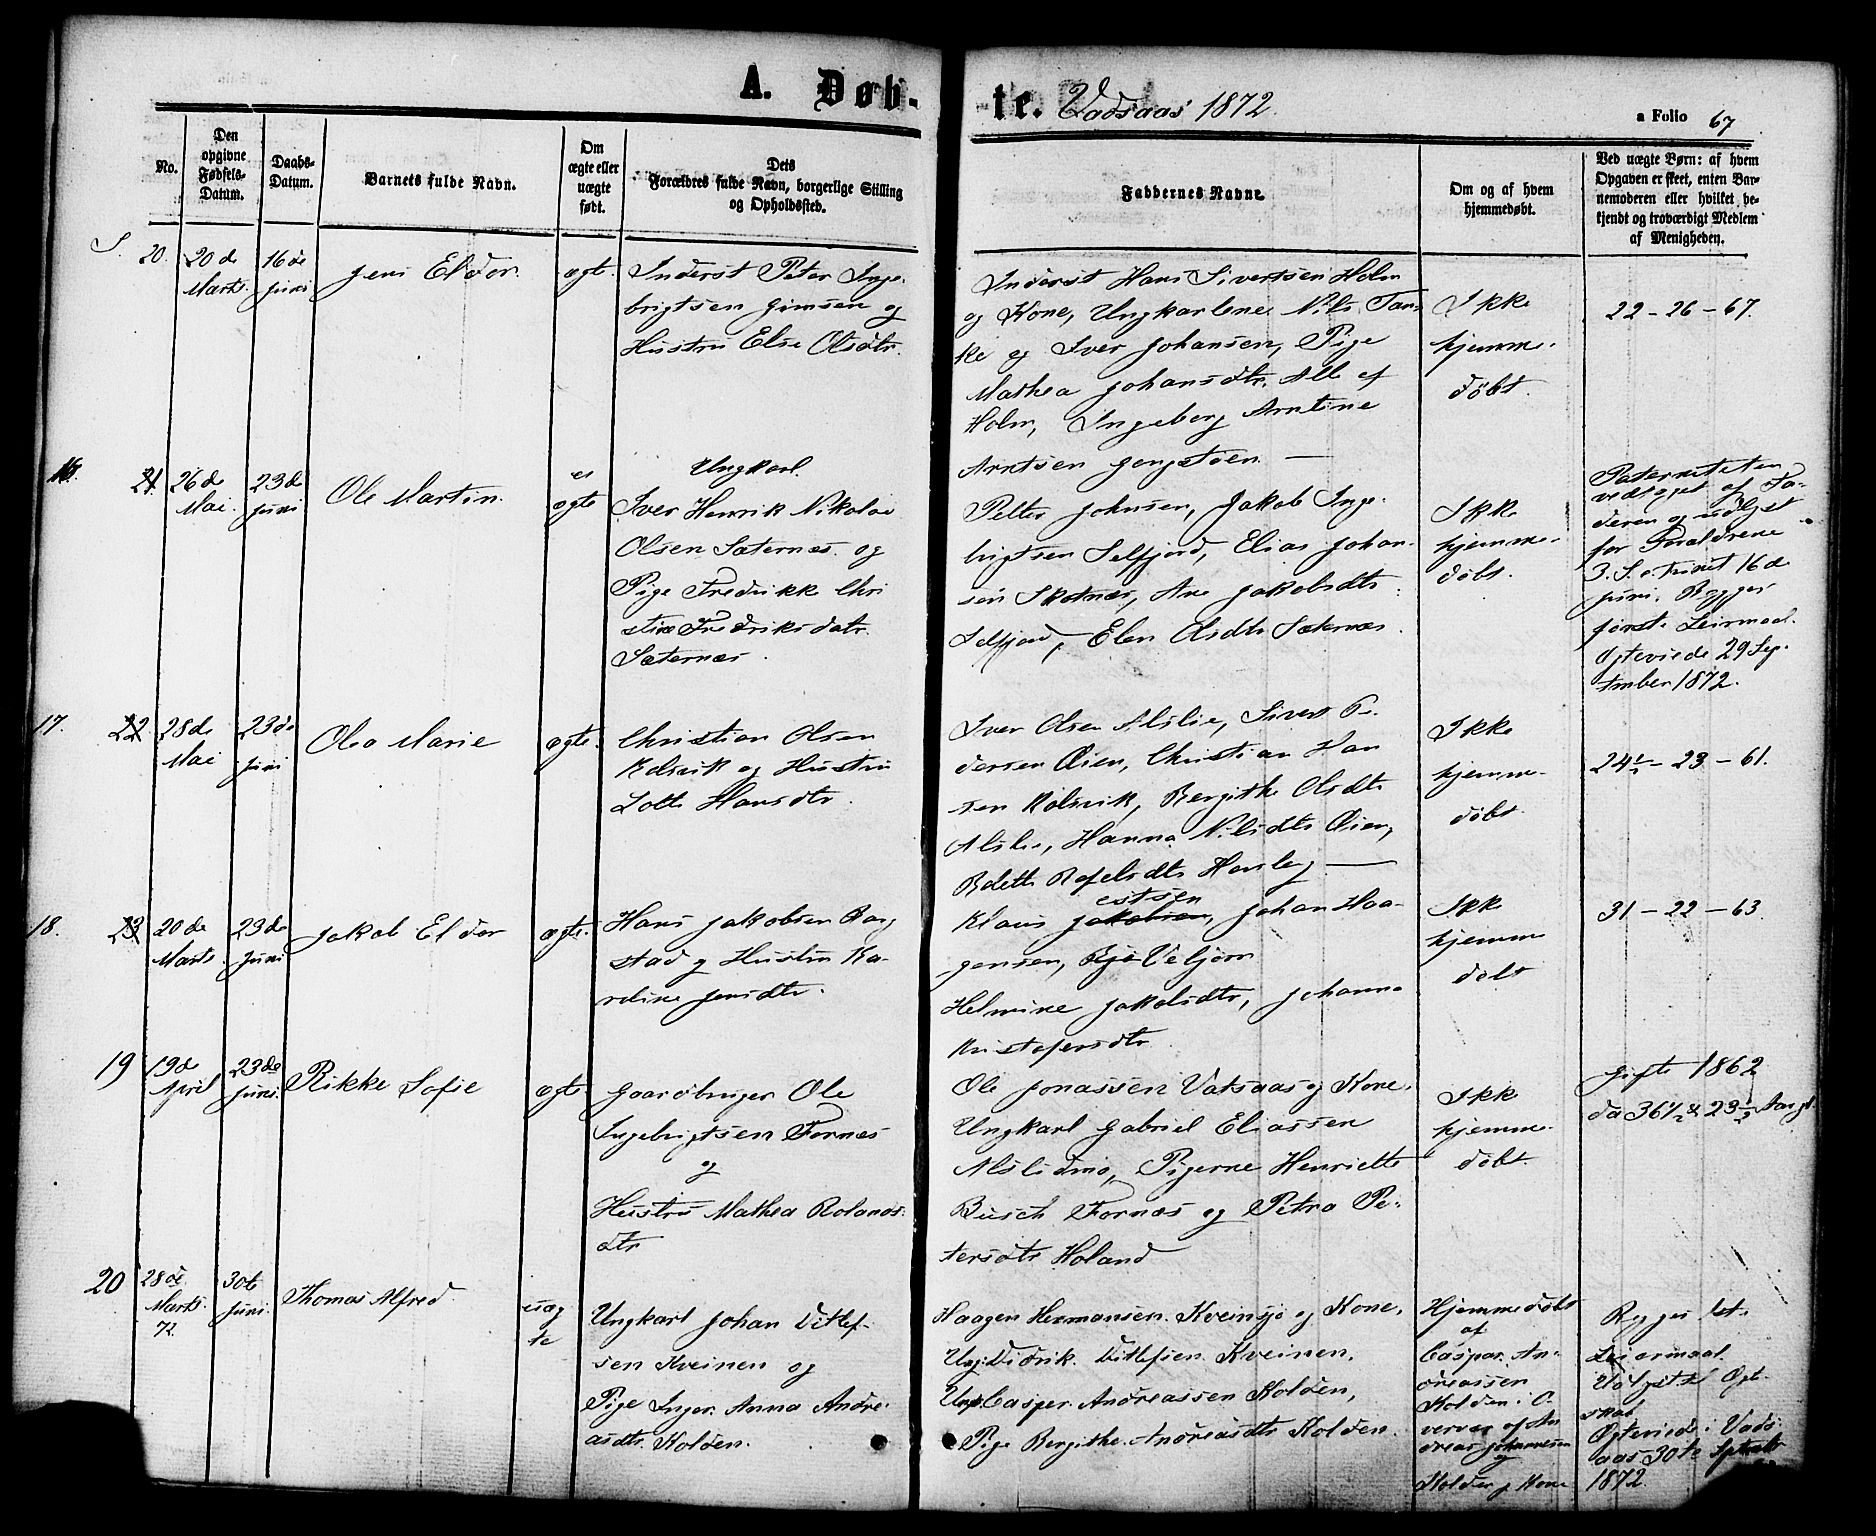 A. Døb-
te. Vadsaas 1872.
a Folio 67
No.
Den opgivne Fødsels-Datum.
Daabs-Datum.
Barnets fulde Navn.
Om ægte eller uægte født.
Dets
Forældres fulde Navn, borgerlige Stilling
og Opholdssted.
Faddernes Navne.
Om og af hvem
hjemmedøbt.
Ved uægte Børn: af hvem
Opgaven er skeet, enten Bar-
nemoderen eller hvilket be-
kjendt og troværdigt Medlem
af Menigheden.
S. 20.
20de
Marts.
16de
Juni
Jens Elidor.
ægt.
Inderst Peter Inge-
brigtsen Gimsen og
Hustru Else Olsdtr.
Inderst Hans Sivertsen Holm
og Kone, Ungkarlene Nils Tan-
ke og Iver Johansen, Pige
Mathea Johansdtr. Alle af
Holm, Ingeborg Arntine
Arntsen
Ikke
hjemme-
døbt.
22 - 26 - 67.
16. 21
26de
Mai.
23de
Juni
Ole Martin.
ægte
Ungkarl.
Iver Henrik Nikolai
Olsen Sæternæs. og
Pige Fredrikke Chri
stine Fredriksdatr.
Sæternæs.
Petter Johnsen, Jakob Inge-
brigtsen Selfjord, Elias Johan-
sen Skotnæs, Ane Jakobsdtr
Selfjord, Elen Olsdtr Sæternæs.
Ikke
hjemme-
døbt.
Paterniteten
vedtaget af Fa-
deren og udlyst
for Forældrene
3. S. e. Trinit 16de
Juni. Begges
første Leirmaal.
Ægteviede 29 Sep-
tember 1872.
17. 22
28de
Mai
23de
Juni
Olea Marie
ægte.
Christian Olsen
Kolsvik og Hustru
Lotte Hansdtr.
Iver Olsen Alslie, Sivert Pe-
dersen Øien, Christian Han
sen Kolsvik, Bergithe Olsdtr
Alslie, Hanna Nilsdtr Øien,
Bolette Rafelsdtr
Ikke
hjemme-
døbt.
24½ - 23 - 61.
18. 23
20de
Marts.
23de
Juni
Jakob Elidor
ægte.
Hans Jakobsen Bang
stad og Hustru Ka-
roline Jensdtr.
estsen
Klaus Jakobsen, Johan Haa-
gensen,
Helmine Jakobsdtr, Johanna
Kristofersdtr.
Ikke
hjemme
døbt
31 - 22 - 63.
19
19de
April
23de
Juni.
Rikke Sofie
ægte
Gaardbruger Ole
Ingebrigtsen Fornæs
og
Hustru Mathea Rolands-
dtr
Ole Jonassen Vatsaas og Kone,
Ungkarl Gabriel Eliassen
Alslidmo, Pigerne Henriette
Busch Fornæs og Petra Pe-
tersdtr Holand
Ikke
hjemme-
døbt.
gifte 1862
da 36½ & 23½ Aar gl
20
28de
Marts.
72.
30te
Juni.
Thomas Alfred.
uæg
te
Ungkarl Johan Ditlef-
sen Kveinen og
Pige Inger. Anna Andre-
asdtr. Kolden.
Haagen Hermansen. Kveinsjø og Kone,
Ung. Didrik. Ditlefsen Kveinen.
Ung. Casper Andreassen Kolden,
Pige Bergithe. Andreasdtr Kolden.
Hjemmedøbt
af
Caspar. An-
dreassen
Kolden. O-
vervær af An
dreas Johannesen
og
Kolden j Kone
Begges 1st.
Leiermaal.
Udlyst til Ægt-
skab
Ægteviede i Vads-
aas 30te Septembr
1872.